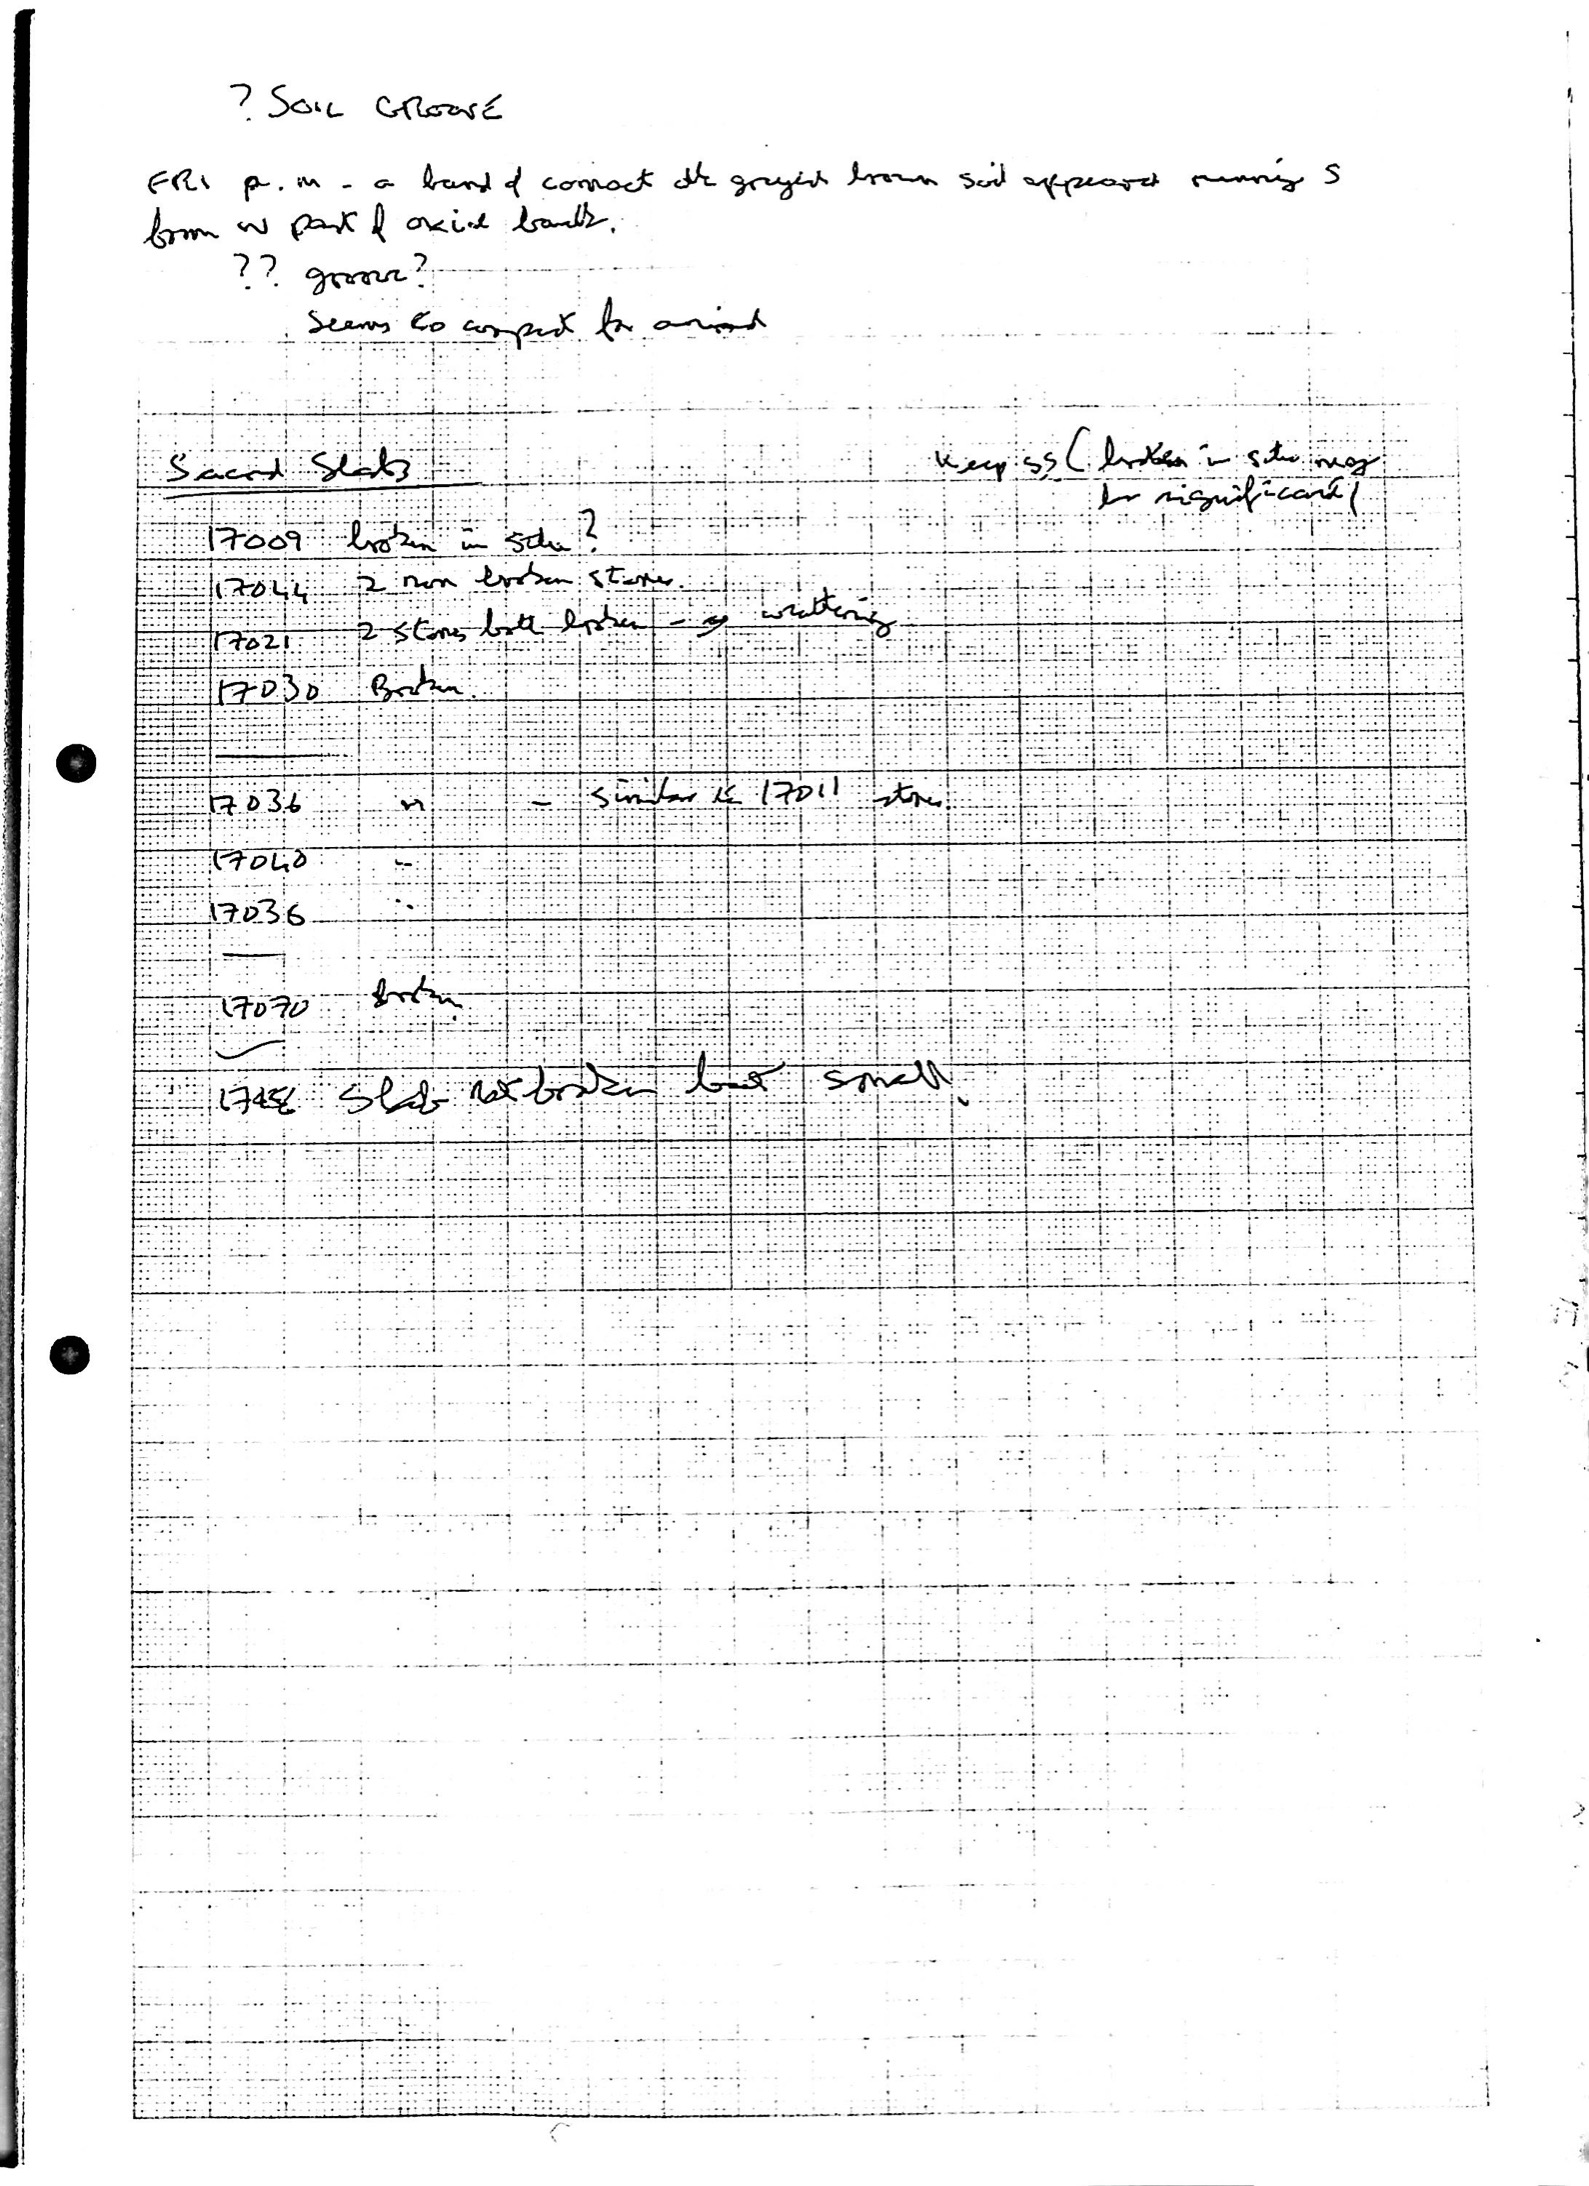 ? SOIL GROOVE
FRI p.m - a band of compact dk greyish brown soil appeared running S
from W part of baulk.
?? groove?
Seems too compact for animal
Keep SS ( broken in situ may
be significant )
Slabs
17009 broken in situ?
17044 2 non broken stones.
17021 2 stones both broken - weathering
17030 Broken.
17036 " - similar to 17011 stones
17040 "
17036 "
17070 broken
Slab not broken but small.